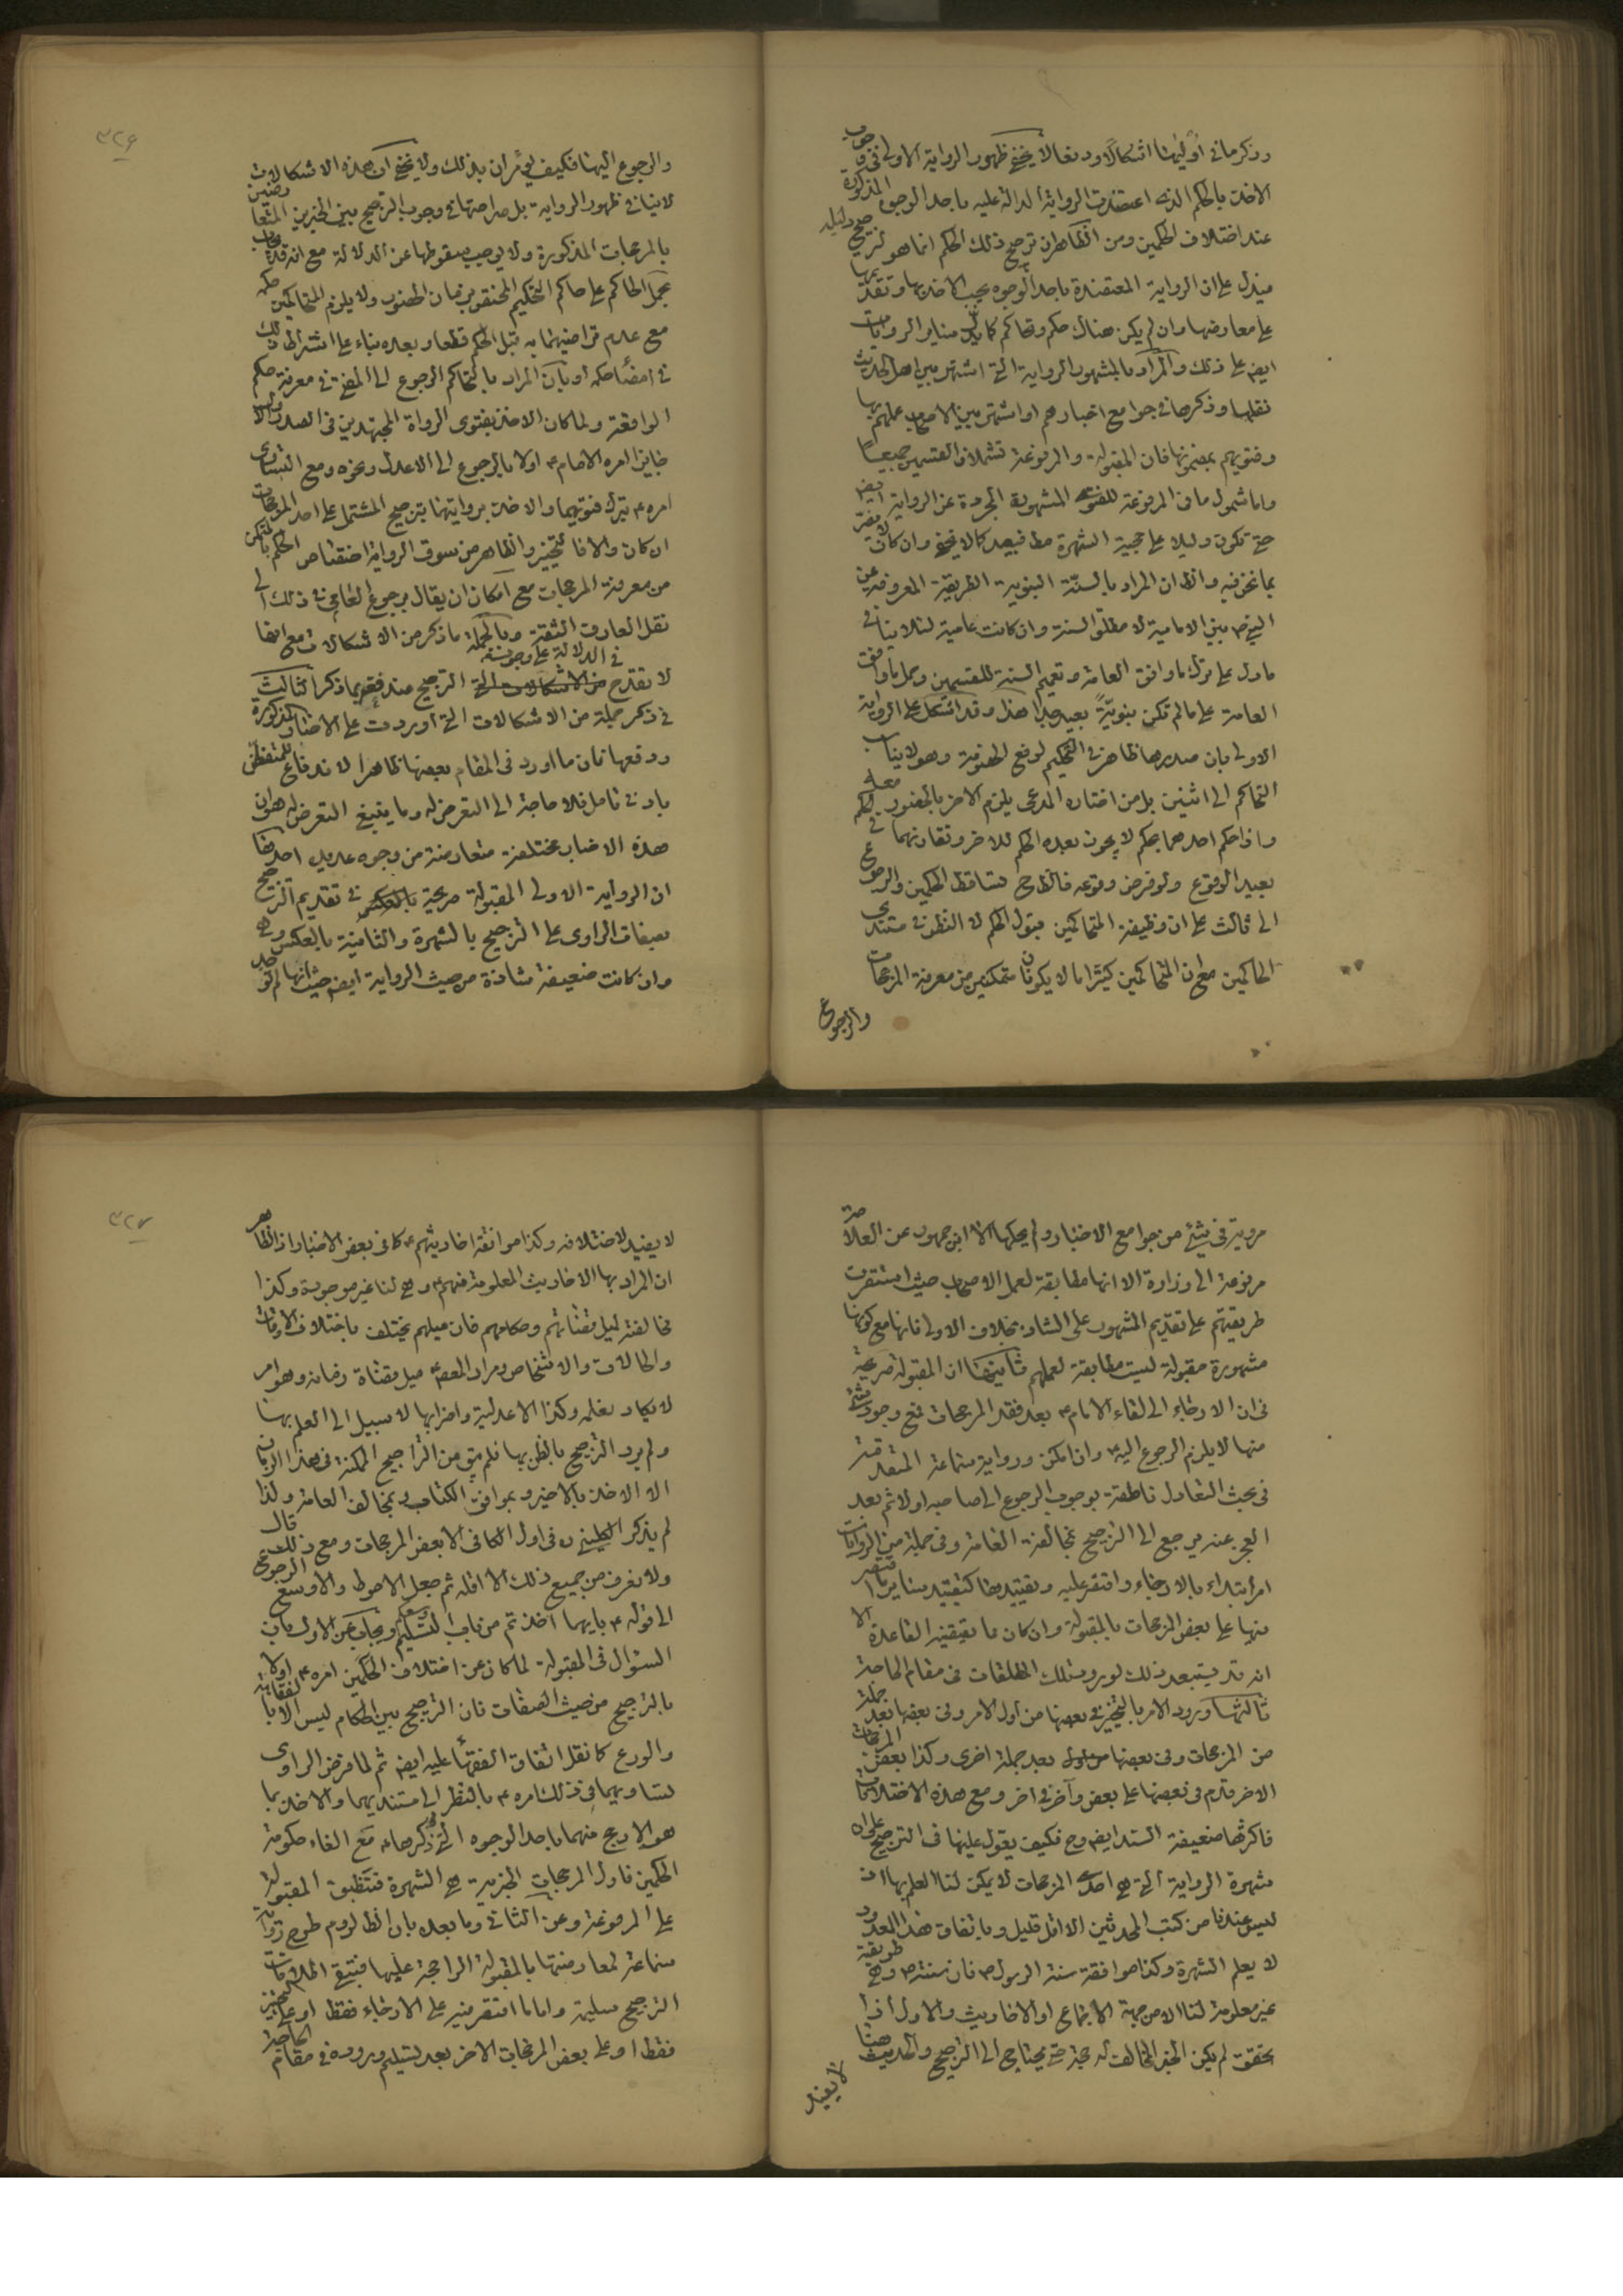 وذكر ما في أوليهما اشكالا ودفعا لا يخفى ظهور الرواية الاولى في وجوب
الاخذ بالحكم الذي اعتضدت الرواية الدالة عليه باحد الوجوه المذكورة
عند اختلاف الحكمين ومن الظاهر ان ترجيح ذلك الحكم انما هو لترجيح دليله
فيدل على ان الرواية المعتضدة باحد الوجوه يجب الاخذ بها وتقديمها
على معارضها وان لم يكن هناك حكم وتحاكم كما يدل ساير الروايات
ايضا على ذلك والمراد بالمشهور الرواية التي اشتهر بين اهل الحديث
نقلها وذكرها في جوامع اخبارهم او اشتهر بين الاصحاب عملهم بها
وفتويهم بمضمونها فان المقبولة والمرفوعة تشملان القسمين جميعا
واما شمول ما في المرفوعة للفتوى المشهورة المجردة عن الرواية ايضا
حتى تكون دليلا على حجية الشهرة مطا فبعيد كما لا يخفى وان كان لا يضر
بما نحن فيه والظ ان المراد بالسنة النبوية الطريقة المعروفة عن
النبي ص بين الامامية لا مطلق السنة وان كانت عامية لئلا ينافي
ما دل على ترك ما وافق العامة وتعميم السنة للقسمين وحمل ما وافقت
العامة على ما لم تكن نبوية بعيد جدا هذا وقد اشكل على الرواية
الاولى بان صدرها ظاهر في التحكيم لرفع الخصومة وهو لا يناسب
التحاكم الى اثنين بل من اختاره المدعي يلزم الاخر بالحضور معه للحكم
واذا حكم احدهما بحكم لا يجوز بعده الحكم للاخر وتقارنهما في
بعيد الوقوع ولو فرض وقوعه فالظ ح تساقط الحكمين والرجوع
الى ثالث على ان وظيفة المتحاكمين قبول الحكم لا النظر في مستندي
الحاكمين مع ان المتحاكمين كثيرا ما لا يكونان متمكنين من معرفة المرجحات
والرجوع
٣٢۶
والرجوع اليها فكيف يؤمران بذلك ولا يخفى ان هذه الاشكالات
لا ينافي ظهور الرواية بل صراحتها في وجوب الترجيح بين الخبرين المتعارضين
بالمرجحات المذكورة ولا يوجب سقوطها عن الدلالة مع انه قد يجاب
بحمل الحاكم على حاكم التحكيم المختص بزمان الحضور ولا يلزم المتحاكمين حكمه
مع عدم تراضيهما به قبل الحكم قطعا وبعده بناء على اشتراط ذلك
في امضاء حكمه او بان المراد بالتحاكم الرجوع الى المفتي في معرفة حكم
الواقعة ولما كان الاخذ بفتوى الرواة المجتهدين في الصدر الاول
جايزا امره الامام ع اولا بالرجوع الى الاعدل ونحوه ومع التساوي
امره ع بترك فتويهما والاخذ بروايتهما بترجيح المشتمل على احد المرجحات
ان كان والا فالتخيير والظاهر من سوق الرواية اختصاص الحكم بالمتمكن
من معرفة المرجحات مع امكان ان يقال برجوع العامي في ذلك الى
نقل العارف الثقة وبالجملة ما ذكر من الاشكالات مع دفعها
لا تقدح في الدلالة على وجوب الترجيح عند فقد ما ذكر الثالث
في ذكر جملة من الاشكالات التي اوردت على الاخبار المذكورة
ودفعها فان ما اورد في المقام بعضها ظاهر الاندفاع للمتفطن
بادنى تامل فلا حاجة الى التعرض له وما ينبغي التعرض له هو ان
هذه الاخبار مختلفة متعارضة من وجوه عديدة احدها
ان الرواية الاولى المقبولة صريحة في تقديم الترجيح
بصفات الراوي على الترجيح بالشهرة والثانية بالعكس وهي
وان كانت ضعيفة شاذة من حيث الرواية ايضا حيث انها لم توجد
مروية في شيء من جوامع الاخبار ولم يحكها الا ابن جمهور عن العلامة
مرفوعة الى زرارة الا انها مطابقة لعمل الاصحاب حيث استقرت
طريقتهم على تقديم المشهور على الشاذ بخلاف الاولى فانها مع كونها
مشهورة مقبولة ليست مطابقة لعملهم ثانيها ان المقبولة صريحة
في ان الارجاء الى لقاء الامام ع بعد فقد المرجحات فمع وجود شيء
منها لا يلزم الرجوع اليه ع وان امكن ورواية سماعة المتقدمة
في بحث التعادل ناطقة بوجوب الرجوع الى صاحبه اولا ثم بعد
العجز عنه يرجع الى الترجيح بمخالفة العامة وفي جملة من الروايات
امر ابتداء بالارجاء واقتصر عليه وتقييدها كتقييد ساير ما اقتصر
فيها على بعض المرجحات بالمقبولة وان كان ما يقتضيه القاعدة الا
انه قد يستبعد ذلك لورود تلك المطلقات في مقام الحاجة
ثالثها ورود الامر بالتخيير في بعضها من اول الامر وفي بعضها بعد جملة
من المرجحات وفي بعضها بعد جملة اخرى وكذا بعض المرجحات
الاخر قدم في بعضها على بعض وآخر في اخر ومع هذه الاختلافات
فاكثرها ضعيفة السند ايضا وح فكيف يعول عليها في الترجيح على ان
شهرة الرواية التي هي احد المرجحات لا يمكن لنا العلم بها اذ
ليس عندنا من كتب المحدثين الا اقل قليل وباتفاق هذا العدد
لا يعلم الشهرة وكذا موافقة سنة الرسول ص فان سنته ص وهي طريقته
غير معلومة لنا الا من جهة الاجماع او الاحاديث والاول اذا
تحقق لم يكن الخبر المخالف له حجة حتى يحتاج الى الترجيح والحديث هنا
لا يفيد
٣٢٧
لا يفيد لاختلافه وكذا موافقة احاديثهم ع كما في بعض الاخبار اذ الظاهر
ان المراد بها الاحاديث المعلومة منهم ع وهي لنا غير موجودة وكذا
مخالفته لميل قضاتهم وحكامهم فان ميلهم يختلف باختلاف الاوقات
والحالات والاشخاص ومراد المعصوم ميل قضاة زمانه وهو امر
لا يكاد نعلمه وكذا الاعدلية واضرابها لا سبيل الى العلم بها
ولم يرد الترجيح بالظن بها فلم يبق من التراجيح الممكنة في هذا الزمان
الا الاخذ بالاخير وبموافق الكتاب وبمخالف العامة ولذا
لم يذكر الكليني ره في اول الكافي الا بعض المرجحات ومع ذلك قال
ولا نعرف من جميع ذلك الا اقله ثم جعل الاحوط والاوسع الرجوع
الى قوله ع بايهما اخذتم من باب التسليم وسعكم ويجاب عن الاول بان
السؤال في المقبولة لما كان عن اختلاف الحكمين امره ع اولا
بالترجيح من حيث الصفات فان الترجيح بين الحكام ليس الا بالفقاهة
والورع كما نقل اتفاق الفقهاء عليه ايضا ثم لما فرض الراوي
تساويهما في ذلك امره ع بالنظر الى مستنديهما والاخذ بما
هو الارجح منهما باحد الوجوه التي ذكرها ع مع الغاء حكومة
الحكمين فاول المرجحات الخبرية هي الشهرة فتنطبق المقبولة
على المرفوعة وعن الثاني وما بعده بان الظ لزوم طرح رواية
سماعة لمعارضتها بالمقبولة الراجحة عليها فتبقى اطلاقات
الترجيح سليمة واما ما اقتصر فيه على الارجاء فقط او على التخيير
فقط او على بعض المرجحات الاخر بعد تسليم وروده في مقام الحاجة